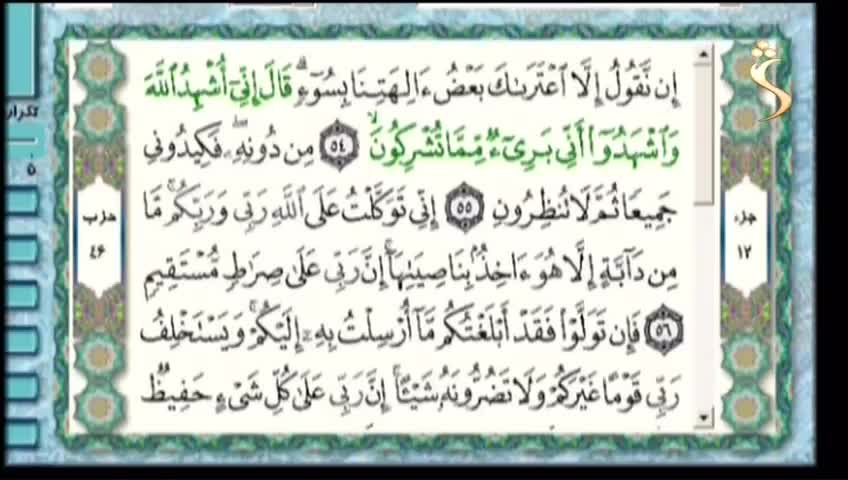 إِن نَّقُولُ إِلَّا ٱعْتَرَىٰكَ بَعْضُ ءَالِهَتِنَا بِسُوٓءٍ ۗ قَالَ إِنِّىٓ أُشْهِدُ ٱللَّهَ
وَٱشْهَدُوٓا۟ أَنِّى بَرِىٓءٌ مِّمَّا تُشْرِكُونَ ۙ ٥٤ مِن دُونِهِۦ ۖ فَكِيدُونِى
جَمِيعًا ثُمَّ لَا تُنظِرُونِ ٥٥ إِنِّى تَوَكَّلْتُ عَلَى ٱللَّهِ رَبِّى وَرَبِّكُم ۚ مَّا
مِن دَآبَّةٍ إِلَّا هُوَ ءَاخِذٌۢ بِنَاصِيَتِهَآ ۚ إِنَّ رَبِّى عَلَىٰ صِرَٰطٍ مُّسْتَقِيمٍ
٥٦ فَإِن تَوَلَّوْا۟ فَقَدْ أَبْلَغْتُكُم مَّآ أُرْسِلْتُ بِهِۦٓ إِلَيْكُمْ ۚ وَيَسْتَخْلِفُ
رَبِّى قَوْمًا غَيْرَكُمْ وَلَا تَضُرُّونَهُۥ شَيْـًٔا ۚ إِنَّ رَبِّى عَلَىٰ كُلِّ شَىْءٍ حَفِيظٌ
جزء
١٢
حزب
٤٦
تكرار